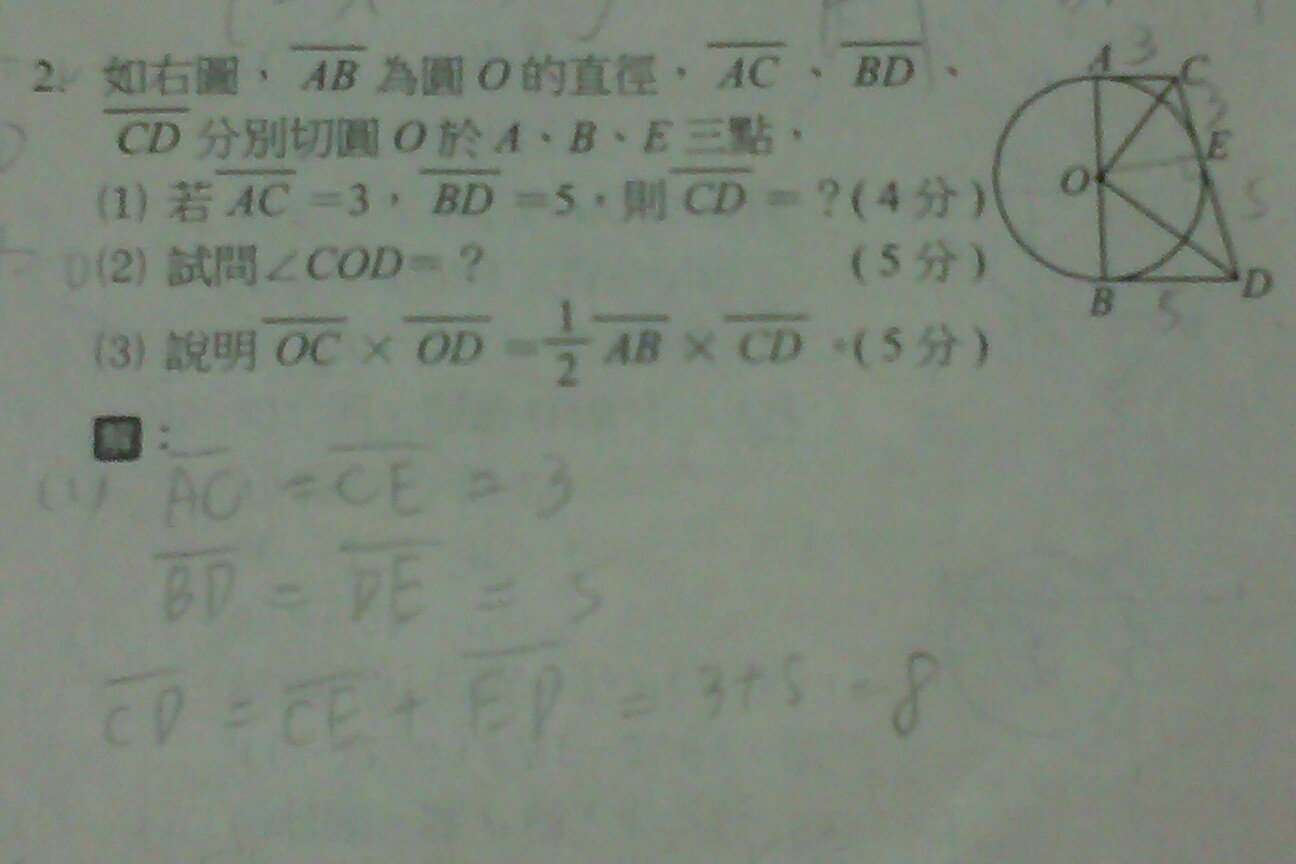 2. 如右圖，AB 為圓 O 的直徑，AC、BD、
CD 分別切圓 O 於 A、B、E 三點，
(1) 若 AC =3，BD =5，則 CD = ?(4分)
(2) 試問∠COD= ? (5分)
(3) 說明 OC × OD = 1/2 AB × CD。(5分)
A 3 C
3
E
O
5
B 5 D
解：
(1) AC = CE = 3
BD = DE = 5
CD = CE + ED = 3+5 = 8